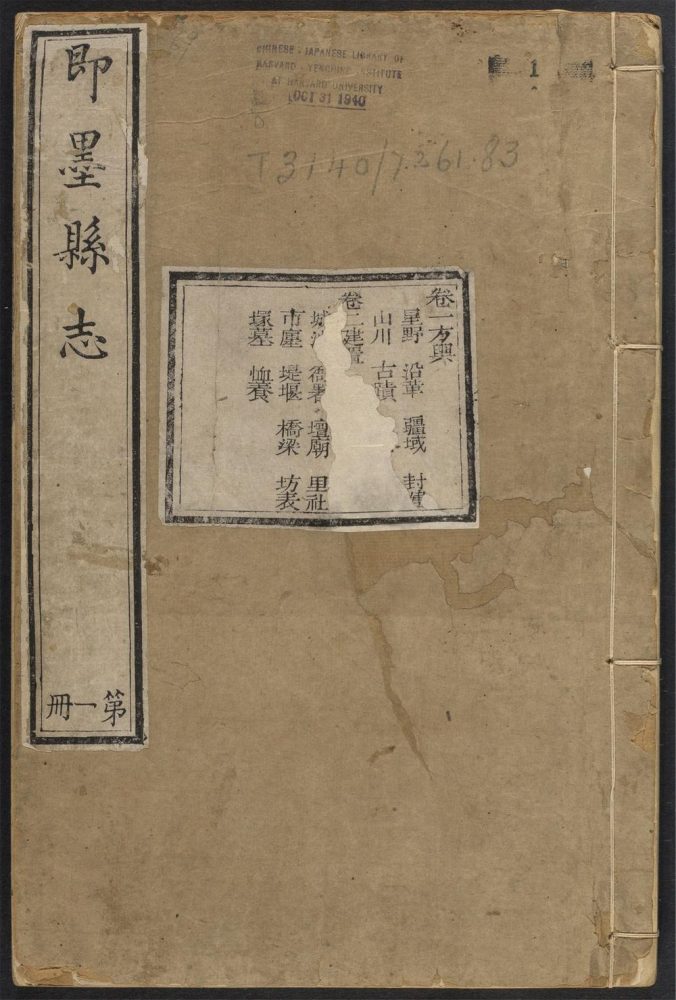 即墨縣志
第一冊
CHINESE - JAPANESE LIBRARY OF
HARVARD - YENCHING INSTITUTE
AT HARVARD UNIVERSITY
OCT 31 1940
1
T3140/7261.83
卷一方輿
星野 沿革 疆域 封建
山川 古蹟
卷二建置
城池 衙署 壇廟 里社
市廛 堤堰 橋梁 坊表
塚墓 恤養